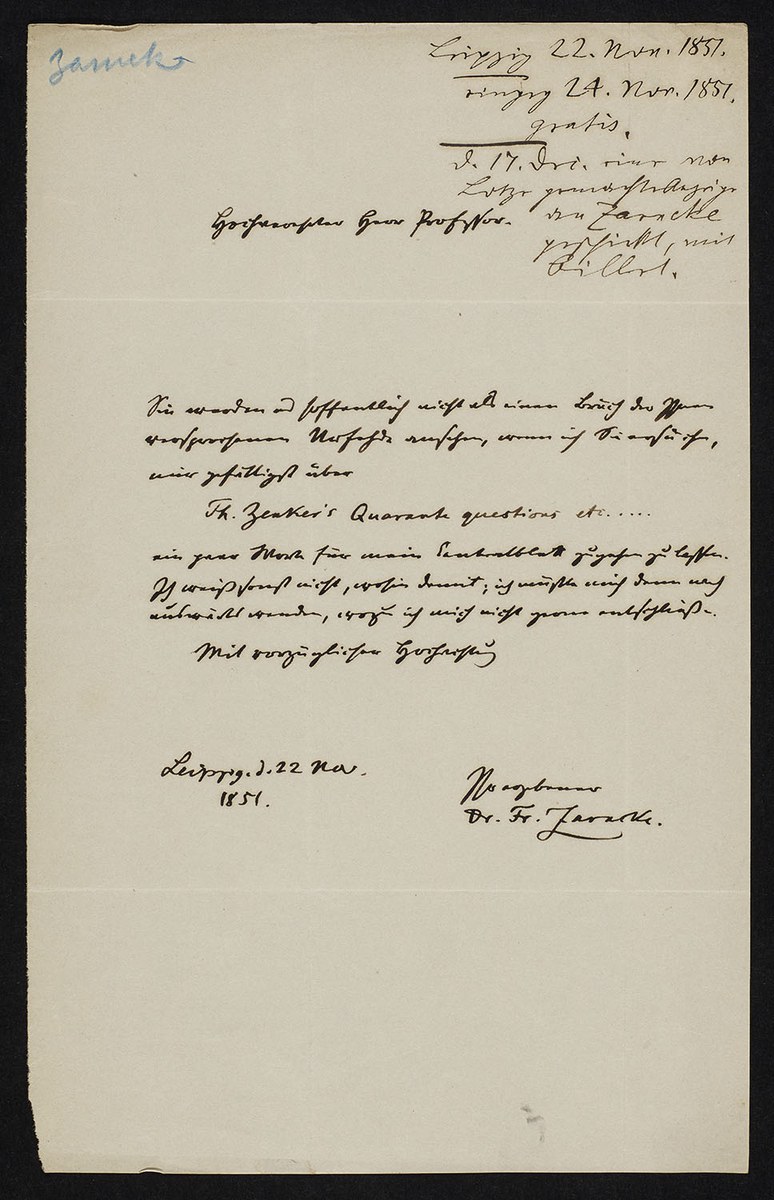 Zarncke
Leipzig 22. Nov. 1851.
eingeg 24. Nov. 1851.
gratis.
d. 17. Dec. eine von
Lotze gemachte Anzeige
den Zarncke
geschickt, mit
Billet.
Hochverehrter Herr Professor.
Sie werden es hoffentlich nicht als einen Bruch der Ihnen
versprochenen Urfehde ansehen, wenn ich Sie ersuche,
mir gefälligst über
Th. Zenker's Quarante questions etc.....
ein paar Worte für mein Centralblatt zugehen zu lassen.
Ich weiß sonst nicht, wohin damit; ich müßte mich denn nach
auswärts wenden, wozu ich mich nicht gerne entschließe.
Mit vorzüglicher Hochachtung
Leipzig. d. 22 Nov.
1851.
Ihr ergebener
Dr. Fr. Zarncke.